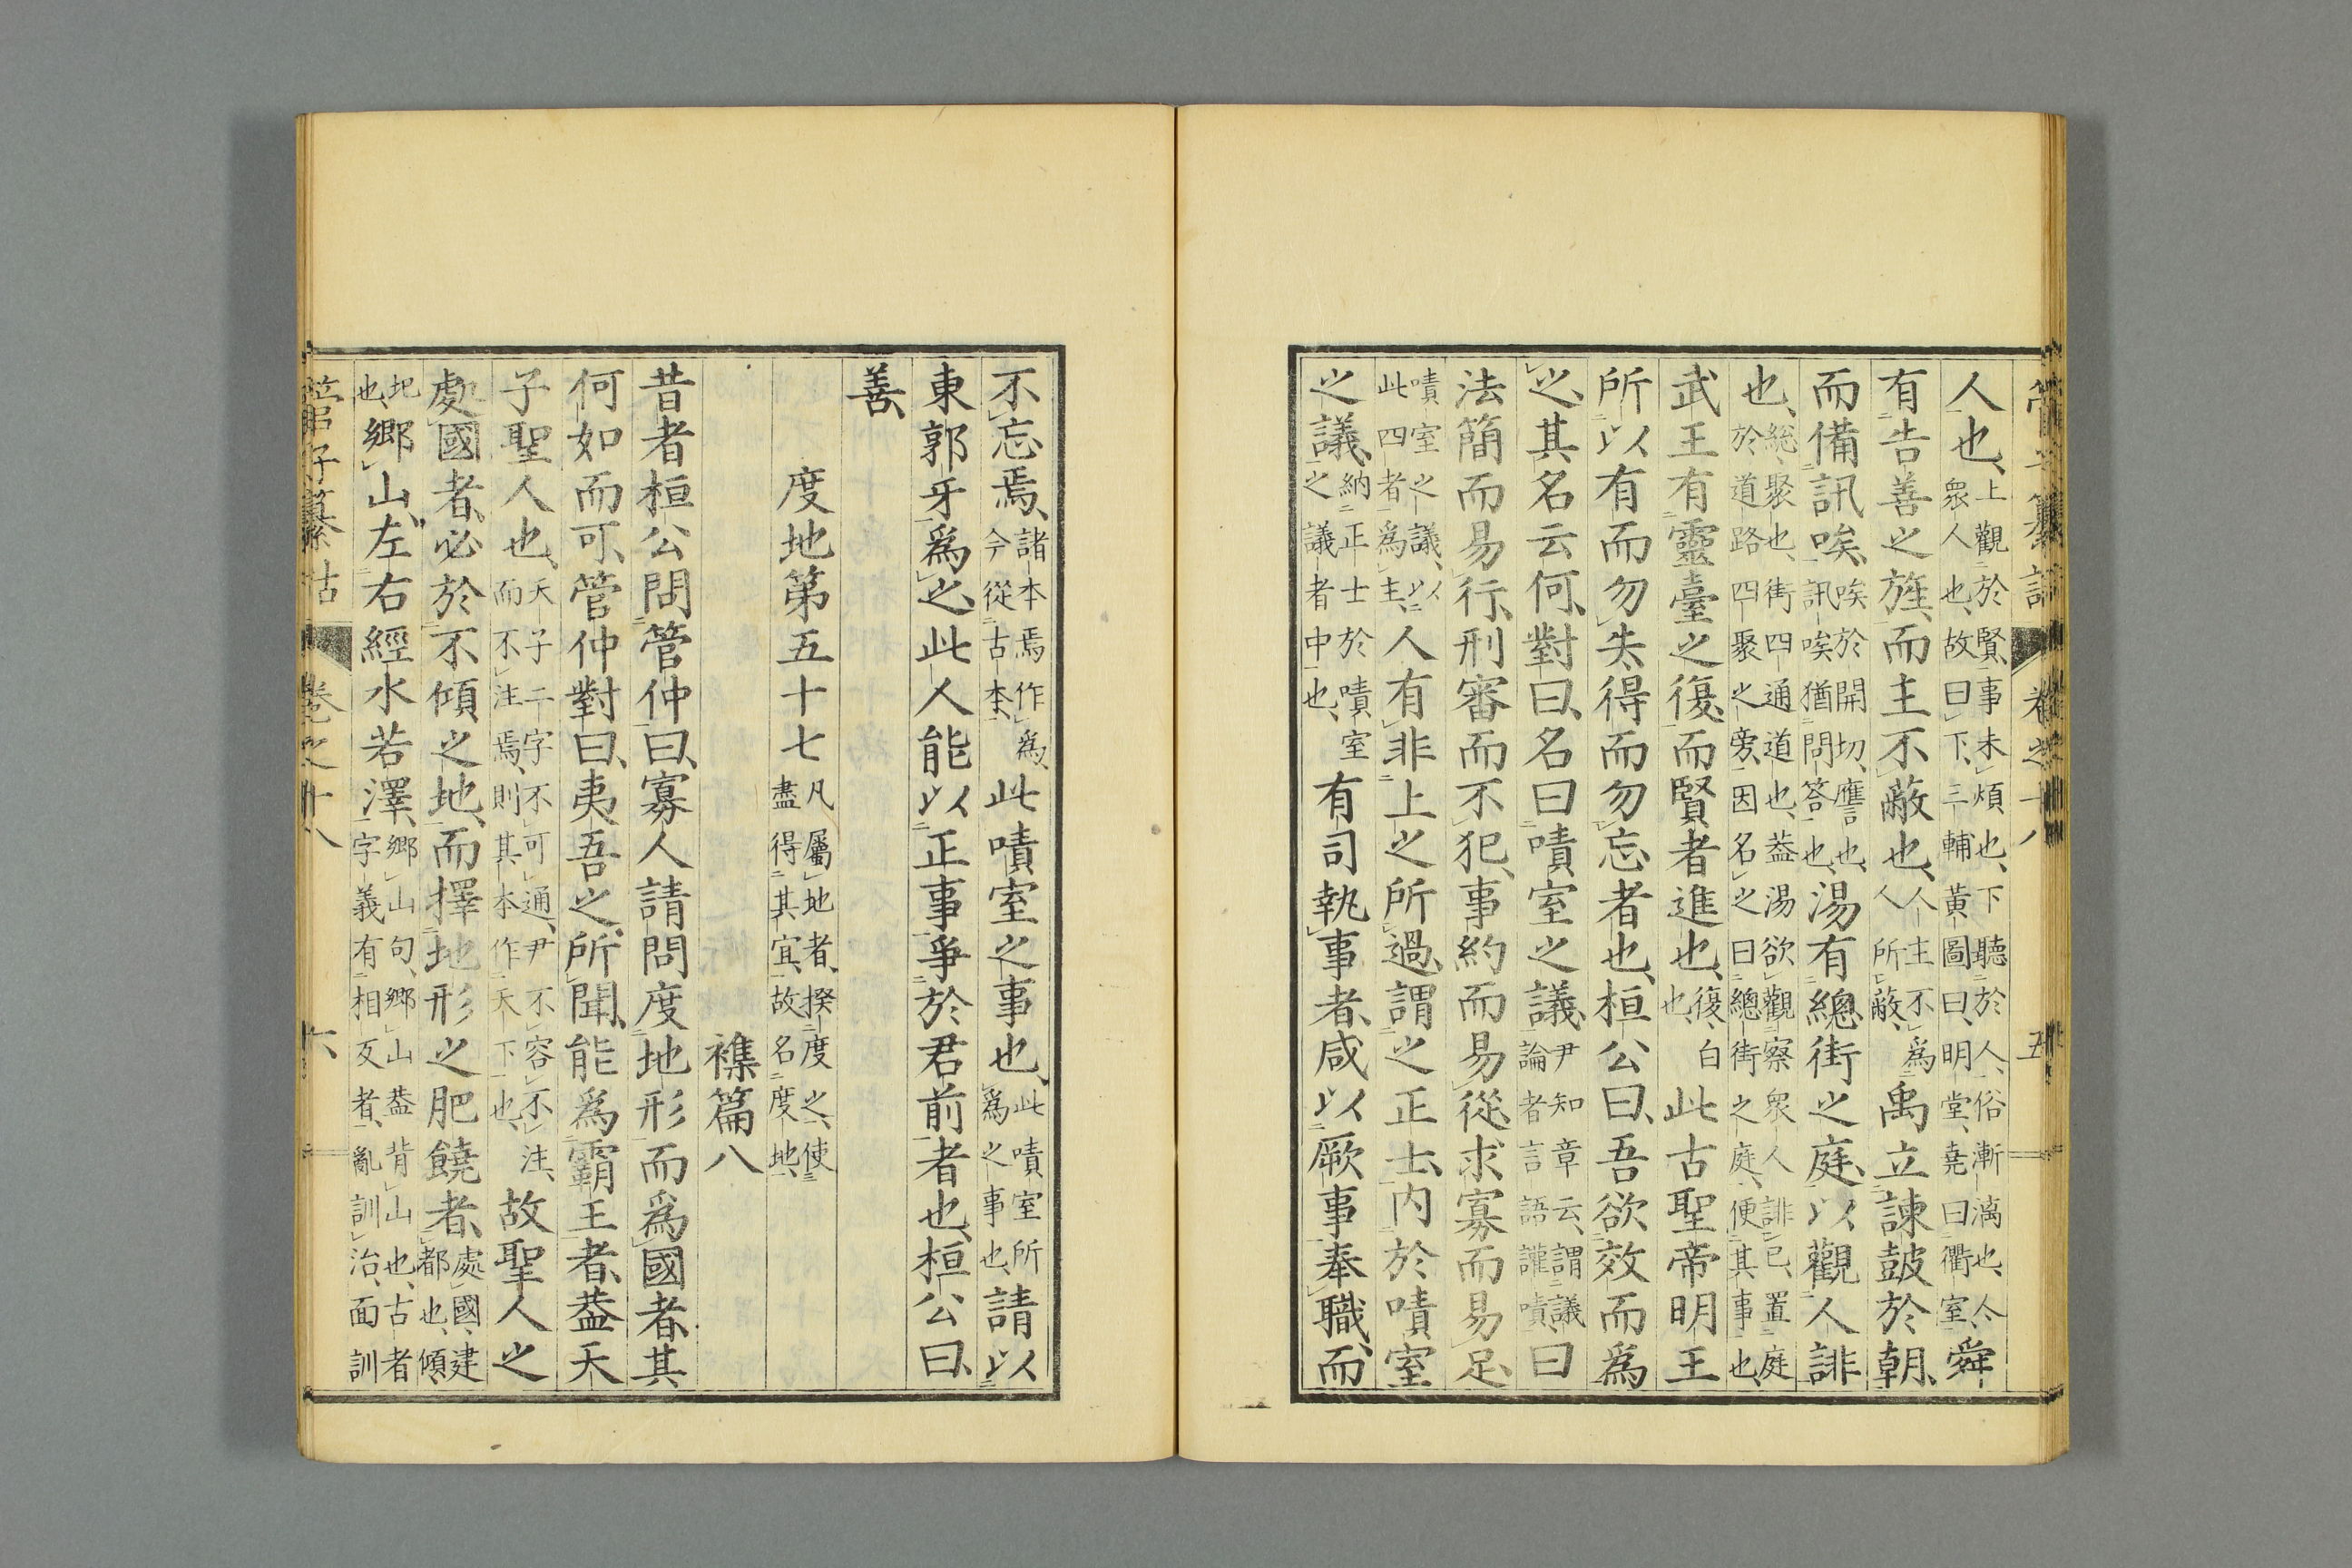 管子纂詁 卷之十八 五
人也、上觀於賢、事未煩也、下聽於人、俗漸漓也、今、衆人也、故曰下、三輔黄圖曰、明堂、堯曰衢室、舜
有告善之旌、而主不蔽也、人主不爲人所蔽、禹立諫鼓於朝、
而備訊唉、唉於開切、譍言也、訊唉猶問答也、湯有總街之庭、以觀人誹
也、總、聚也、街四通道也、葢湯欲觀察衆人誹已、置庭於道路四聚之旁、因名之曰總街之庭、便其事也、
武王有靈臺之復、而賢者進也、復、白也、此古聖帝明王
所以有而勿失、得而勿忘者也、桓公曰、吾欲效而爲
之、其名云何、對曰、名曰嘖室之議、尹知章云、謂議論者言語讙嘖、曰
法簡而易行、刑審而不犯、事約而易從、求寡而易足、
嘖室之議、以此四者爲主、人有非上之所過、謂之正士、内於嘖室
之議、納正士於嘖室之議者中也、有司執事者、咸以厥事奉職、而
不忘焉、諸本焉作爲、今從古本、此嘖室之事也、此嘖室所爲之事也、請以
東郭牙爲之、此人能以正事爭於君前者也、桓公曰、
善、
度地第五十七 凡屬地者、揆度之、使盡得其宜、故名度地、
襍篇八
昔者桓公問管仲曰、寡人請問度地形而爲國者、其
何如而可、管仲對曰、夷吾之所聞、能爲霸王者、葢天
子聖人也、天子二字不可通、尹不容不注、而不注焉、則其本作天下也、故聖人之
處國者、必於不傾之地、而擇地形之肥饒者、處國、建都也、傾、
圯也、鄉山、左右經水若澤、鄉山句、鄉山葢背山也、古者字義有相反者、亂訓治、面訓
管子纂詁 卷之十八 六